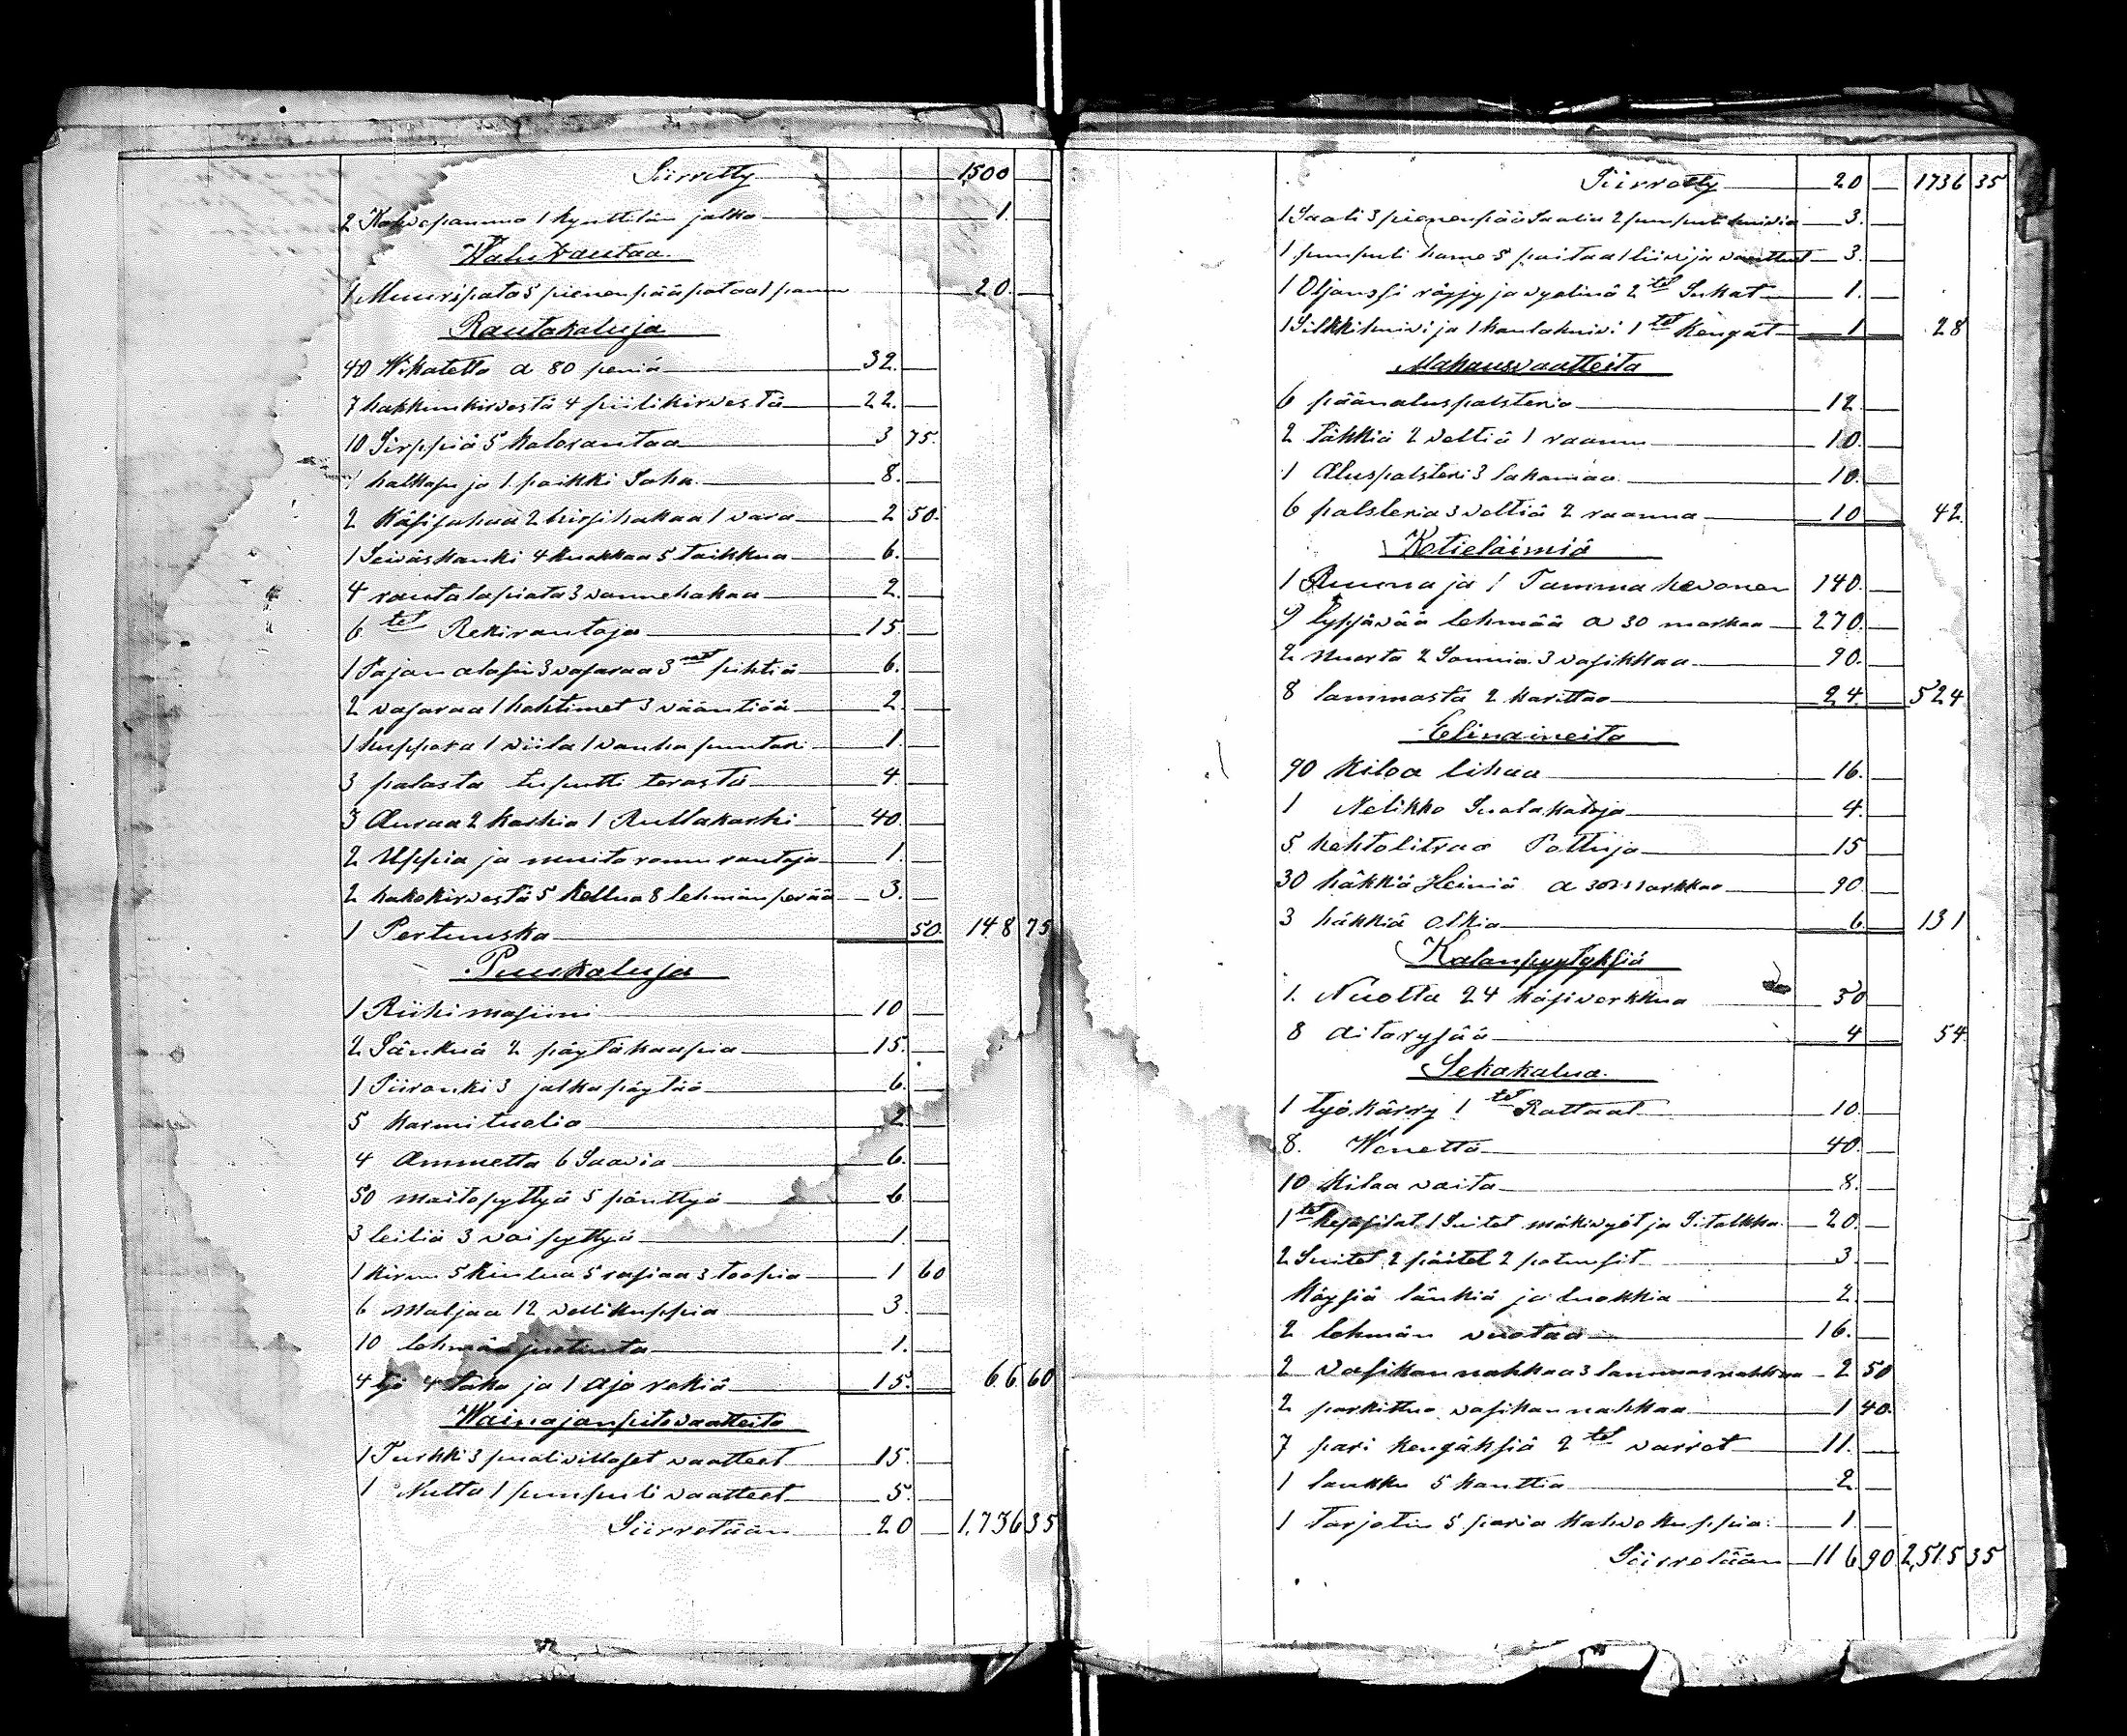 Siirretty 1,500
2 Kahvepannua 1 kynttilän jalka 1.
Walu Rautaa
1 Muuripata 5 pienenpää pataa 1 pannu 20.
Rautakaluja
40 Wikatetta a 80 peniä 32.
7 hakkuukirvestä 4 piilikirvestä 22.
10 Sirppiä 5 Kalorautaa 3 75.
1 halkaju ja 1 poikki Saha 8.
2 Käsisahaa 2 hirsihakaa 1 vara 2 50.
1 Seiväskanki 4 Kuokkaa 5 taikkua 6.
4 rautalapiata 3 vannehakaa 2.
6 tet Rekirautoja 15.
1 Pajan alasin 3 vasaraa 3 met pihtiä 6.
2 vasaraa 1 hohtimet 3 vääntiöä 2.
1 kuppara 1 viila 1 vanha puntari 1.
3 palasta terästä 4.
3 Auraa 2 Karhia 1 Rullakarhi 40.
2 Uppia ja muita romu rautoja 1.
2 hakokirvestä 5 Kellua 8 lehmänperää 3.
1 Pertuuska 50. 148 75
Puukaluja
1 Riihimasiini 10
2 Sänkyä 2 pöytäkaapia 15.
1 Piironki 3 jalkapöytää 6.
5 Karmituolia 2
4 Ammetta 6 Saavia 6.
50 maitopyttyä 5 pönttyä 6
3 leiliä 3 voipyttyä 1.
1 Kirnu 5 Kiulua 5 rasiaa 3 toopia 1 60
6 Maljaa 12 vellikuppia 3.
10 lehmän juotinta 1.
4 työ 4 täka ja 1 ajo rekiä 15. 66 60
Wainajanpitovaatteita
1 Turkki 3 puolivillaset vaatteet 15.
1 Nuttu 1 pumpuli vaatteet 5.
Siirretään 20 1,736 35
Siirretty 20 1736 35
1 Saali 3 pienenpää Saalia 2 pumpuli huivia 3.
1 pumpuli hame 5 paitaa 1 liivi ja vanttut 3.
1 Oljanssi röyjy ja vyöliinä 2 tet Sukat 1.
1 Silkkihuivi ja 1 kaulahuivi 1 tet Kengät 1 28
Makausvaatteita
6 päänaluspalsteria 12
2 Täkkiä 2 veltiä 1 raanu 10.
1 Aluspalsteri 3 lakanaa 10.
6 palsteria 3 veltiä 2 raanua 10 42.
Kotieläimiä
1 Ruuna ja 1 Tamma hevonen 140.
9 lypsävää lehmää a 30 markaa 270.
2 nuorta 2 Sonnia 3 vasikkaa 90.
8 lammasta 2 karittaa 24. 524
Elinaineita
90 Kiloa lihaa 16.
1 Nelikko Suolakaloja 4.
5 hehtolitraa Pottuja 15
30 häkkiä Heiniä a 3 markkaa 90.
3 häkkiä olkia 6. 131
Kalanpyytyksiä
1. Nuotta 24 käsiverkkua 50
8 aitarysää 4 54.
Sekakalua.
1 työkärry 1 tet Rattaat 10.
8. Wenettä 40.
10 Kiloa voita 8.
1 tet 1 Suitet mäkivyöt ja Sitolkka 20.
2 Suitet 2 päitet 2 patuusit 3.
Köysiä länkiä ja luokkia 2.
2 lehmän vuotaa 16.
2 vasikannahkaa 3 lammasnahkaa 2 50
2 parkittua vasikannahkaa 1 40.
7 pari Kengäksiä 2 tet varret 11.
1 laukku 5 kanttia 2
1 Tarjotin 5 paria Kahvekuppia 1.
Siirretään 116 90 2,515 35